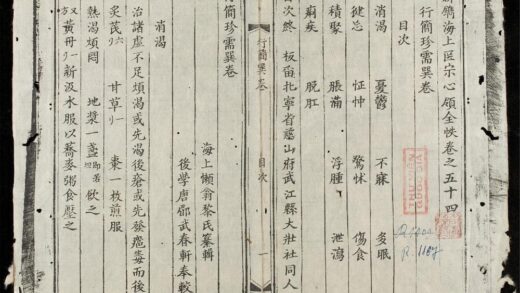 新鐫海上醫宗心領全帙卷之五十四
行簡珍需巽卷
目次
消渴 憂鬱 不寐 多眠
健忘 怔忡 驚怵 傷食
積聚 脹滿 浮腫 泄瀉
痢疾 脫肛
目次終 板留北寧省慈山府武江縣大壯社同人
行簡巽卷 目次 一
海上懶翁黎氏纂輯
後學唐郿武春軒奉較
消渴
治諸虛不足煩渴或先渴後瘡或先發癰毒而後
炙芪六 甘草一 棗一枚煎服
熱渴煩悶 地漿一盞 飲之
又方 黃毋 新汲水服以蕎麥粥食壓之